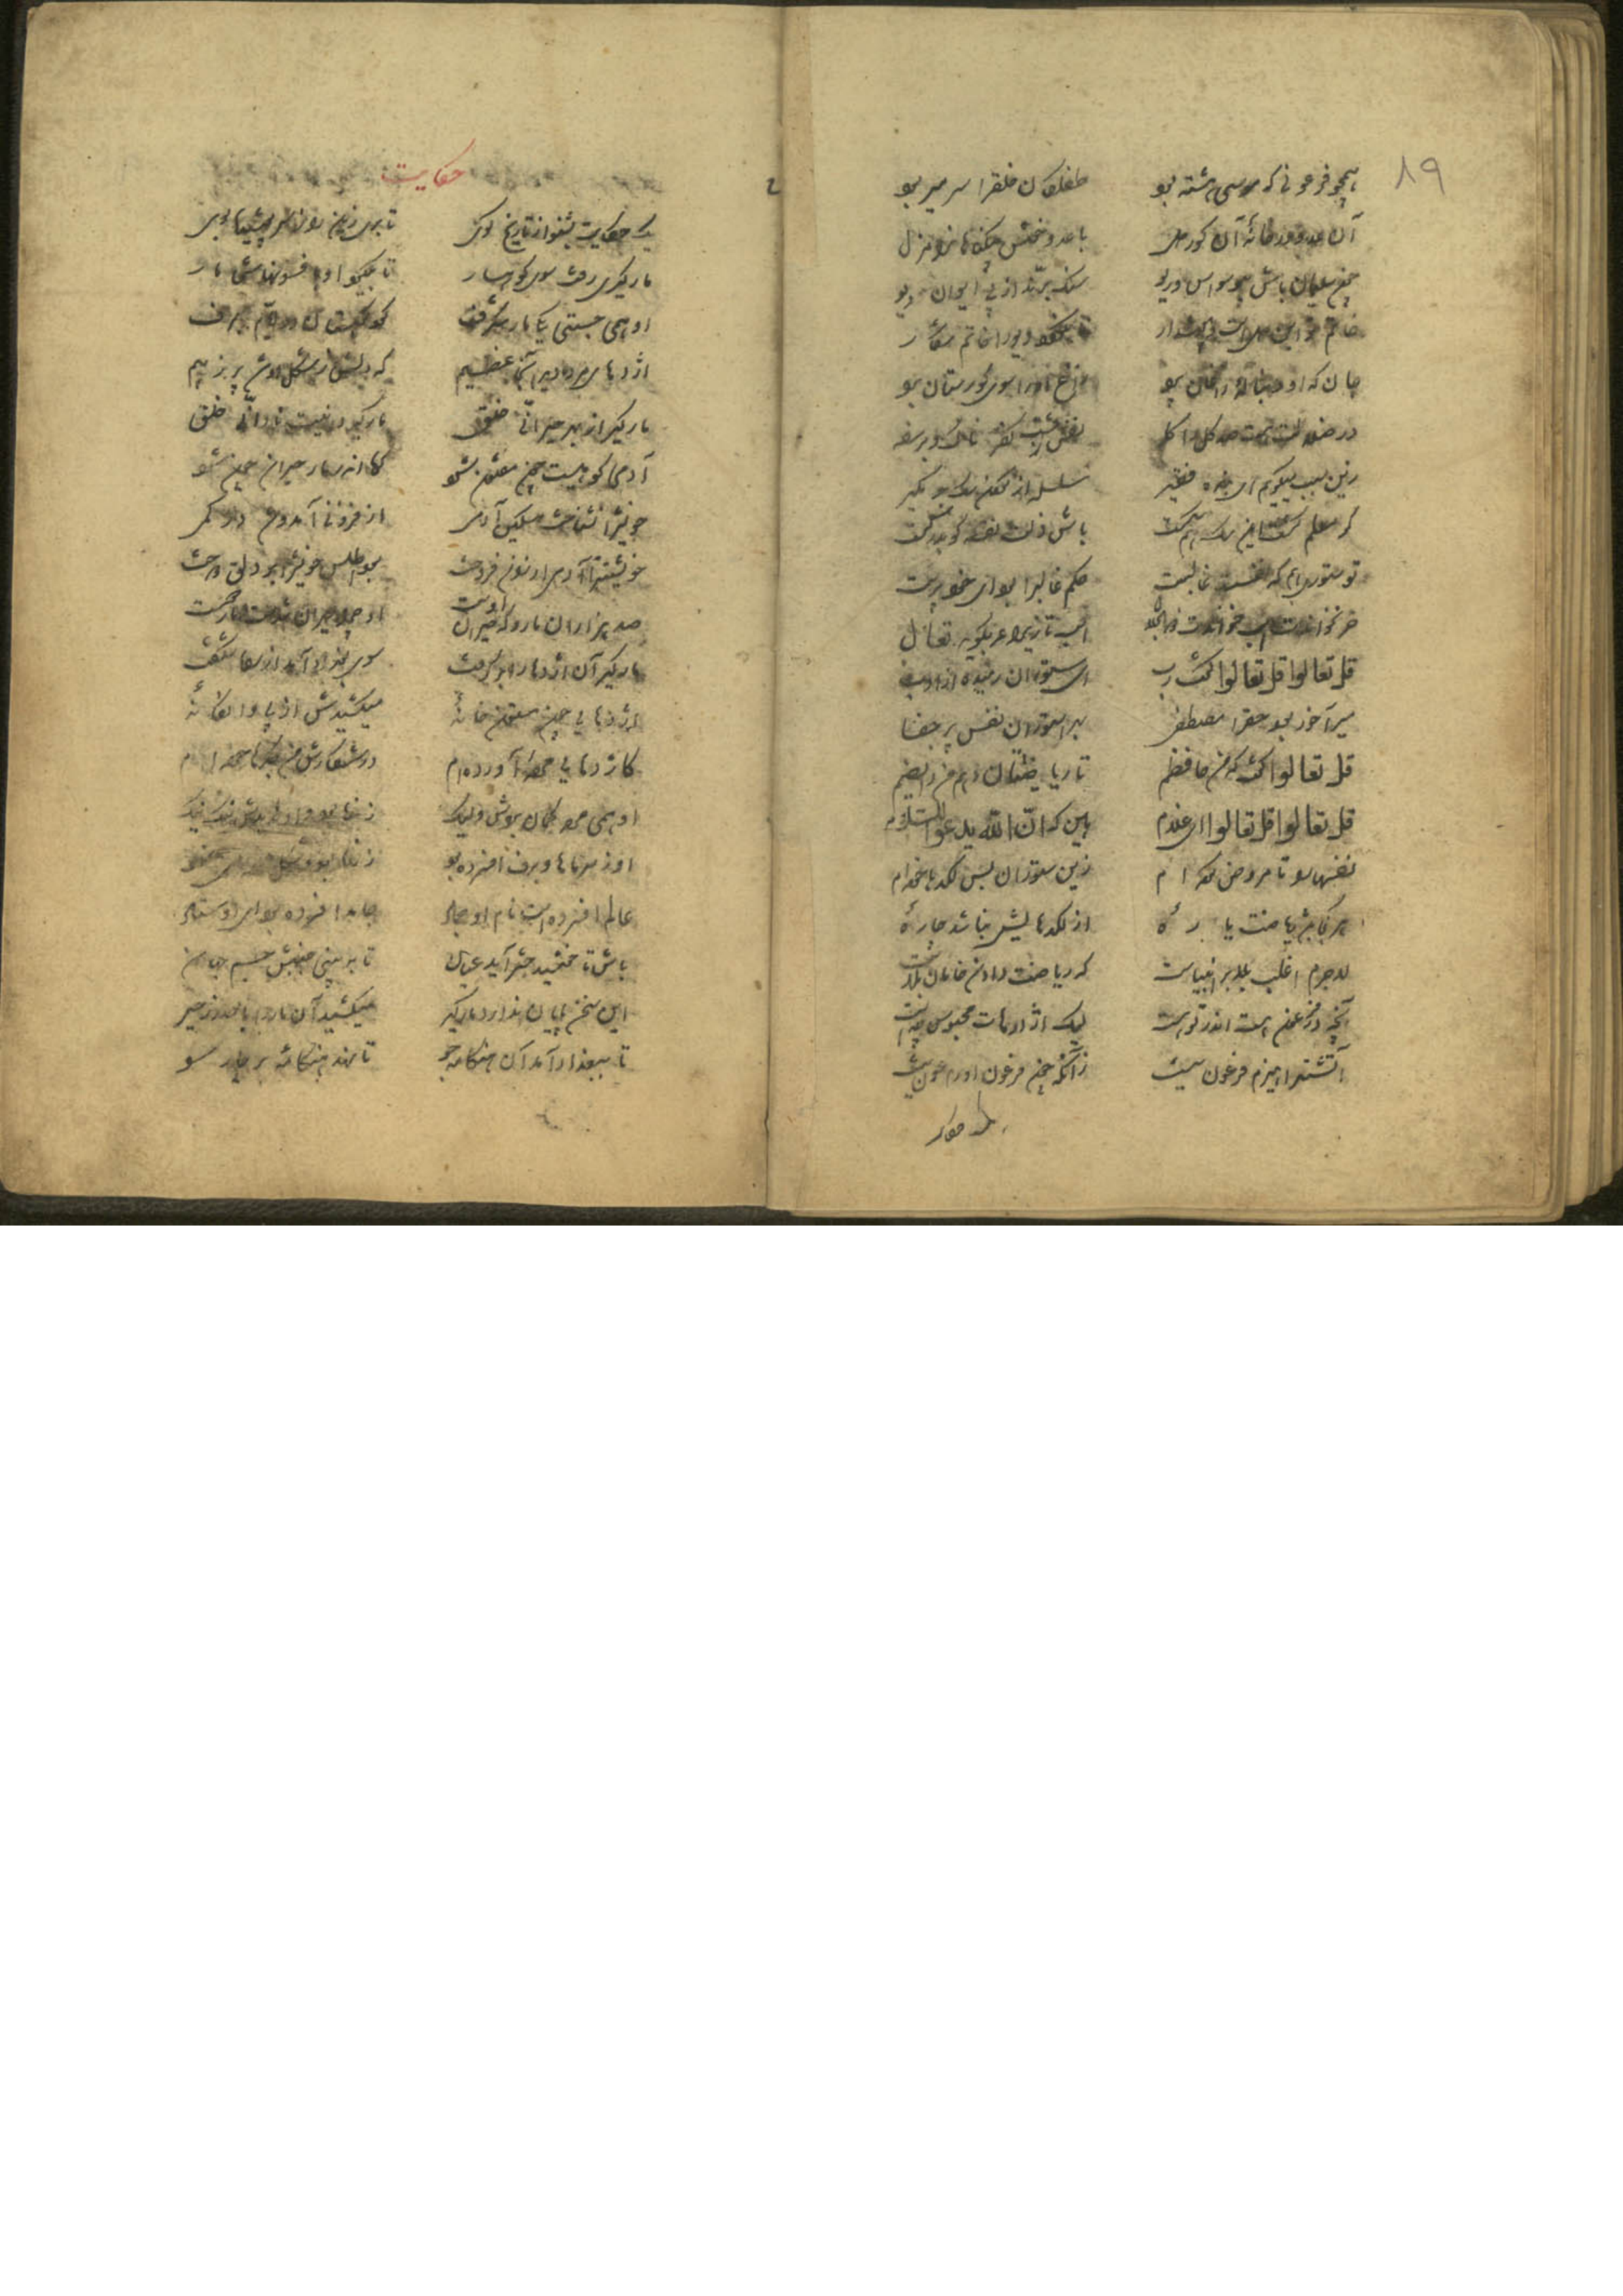 ۸۹
همچو فرعونی که موسی هشته بود طفلکان خلق را سر میربود
آن عدو در خانهٔ آن کور دل
چون سلیمان باش بیوسواس و ریو سنگ برند از پی ایوان دیو
خاتم تو این دلست و هوشدار
جان که او دنبالهٔ زاغان پرد زاغ او را سوی گورستان برد
در ضلالت هست صد کل را کله نفس زشت کفرناک پر سفه
زین سبب میگویم ای بنده فقیر سلسله از گردن سگ بر مگیر
گر معلم گشت این سگ هم سگست باش ذلت نفسه کو بدرگست
تو ستوری هم که نفست غالبست حکم غالب را بود ای خود پرست
خر نخواندت اسب خواندت ذو الجلال اسب تازی را عرب گوید تعال
قل تعالوا قل تعالوا گفت رب ای ستوران رمیده از ادب
میر آخور بود حق را مصطفی بهر استوران نفس پر جفا
قل تعالوا گفت که من حافظم تا ریاضتتان دهم من رایضم
قل تعالوا قل تعالوا ای غلام هین که ان الله یدعوا السلام
نفسها را تا مروض کرده ام زین ستوران بس لکدها خورده ام
هر کجا باشد ریاضت باره از لکدهایش نباشد چاره
لاجرم اغلب بلا بر انبیاست که ریاضت دادن خامان بلاست
آنچه در فرعون هست اندر تو هست لیک اژدرهات محبوس چهست
آتشت را هیزم فرعون نیست زانکه چون فرعون او را عون نیست
حکایت
یک حکایت بشنو از تاریخ گوی تا بری زین راز سرپوشیده بوی
مارگیری رفت سوی کوهسار تا بگیرد او بافسونهاش مار
او همی جستی یکی مار شگرف گرد کوهستان در ایام برف
اژدهای مرده دید آنجا عظیم که دلش از شکل او شد پر ز بیم
مارگیر از بهر حیرانی خلق مار گیرد اینت نادانی خلق
آدمی کوهیست چون مفتون شود کوه اندر مار حیران چون شود
خویش را نشناخت مسکین آدمی از فزونی آمد و شد در کمی
خویشتن را آدمی ارزان فروخت بود اطلس خویش را بر دلق دوخت
صد هزاران مار و که حیران اوست او چرا حیران شدست و مار دوست
مارگیر آن اژدها را بر گرفت سوی بغداد آمد از بهر شگفت
اژدهایی چون ستون خانهٔ میکشیدش از پی دانگانهٔ
کاژدهای مرده آورده ام در شکارش من جگرها خورده ام
او همی مرده گمان بردش ولیک زنده بود و او ندیدش نیک نیک
او ز سرماها و برف افسرده بود
عالم افسرده است نام او جماد جامد افسرده بود ای اوستاد
باش تا خورشید حشر آید عیان تا ببینی جنبش جسم جهان
این سخن پایان ندارد مارگیر میکشید آن مار را با صد زحیر
تا ببغداد آمد آن هنگامه جو تا نهد هنگامهٔ بر چار سو